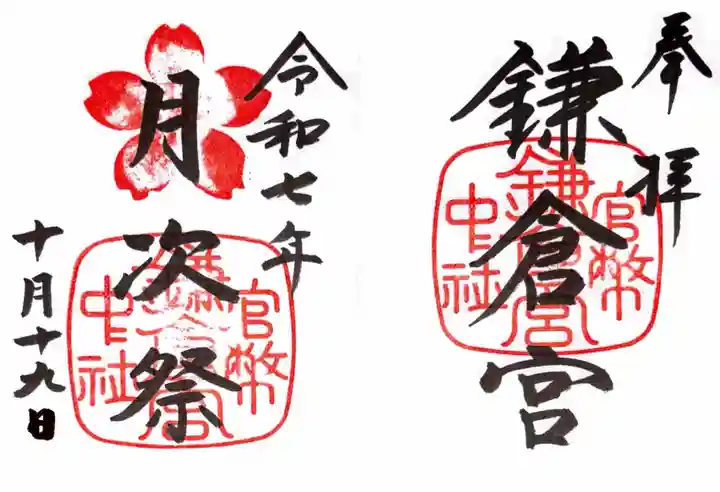 奉拝
鎌倉宮
官幣
鎌倉宮
中社
令和七年
月次祭
十月十九日
官幣
鎌倉宮
中社